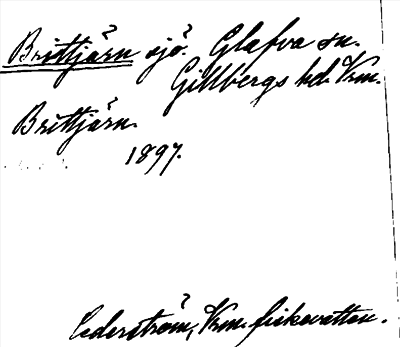 Brittjärn sjö. Glafva sn.
Gillbergs hd. Vrm.
Brittjärn.
1897.
Cederström, Vrm. fiskevatten.